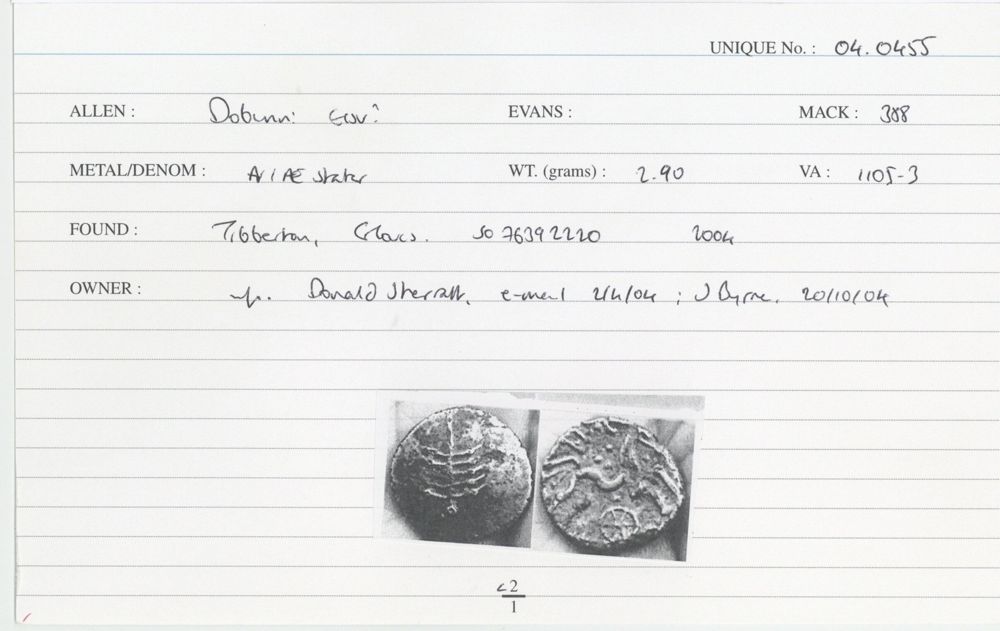 UNIQUE No. : 04.0455
ALLEN : Dobunni EISV? EVANS : MACK : 388
METAL/DENOM : AV/AE stater WT. (grams) : 2.90 VA : 1105-3
FOUND : Tibberton, Gloucs. SO 76392220 2004
OWNER : Donald Sherratt, e-mail 2/4/04 ; J Byrne, 20/10/04
<2
1